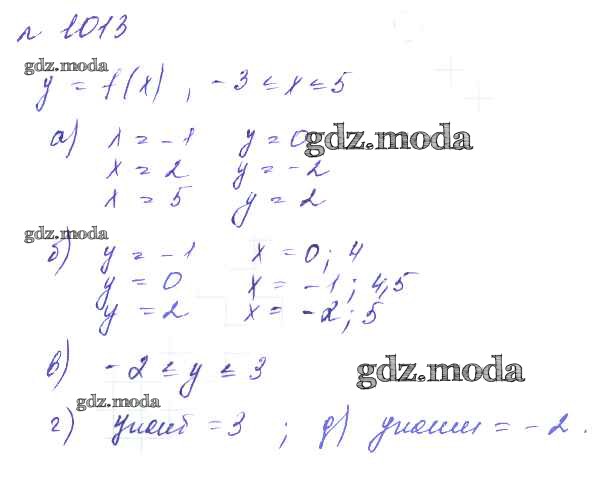 № 1013
gdz.moda
y = f(x), -3 ≤ x ≤ 5
а) x = -1 y = 0
gdz.moda
x = 2 y = -2
x = 5 y = 2
gdz.moda
б) y = -1 x = 0; 4
y = 0 x = -1; 4,5
y = 2 x = -2; 5
в) -2 ≤ y ≤ 3
gdz.moda
gdz.moda
г) yнаиб = 3; д) yнаим = -2.